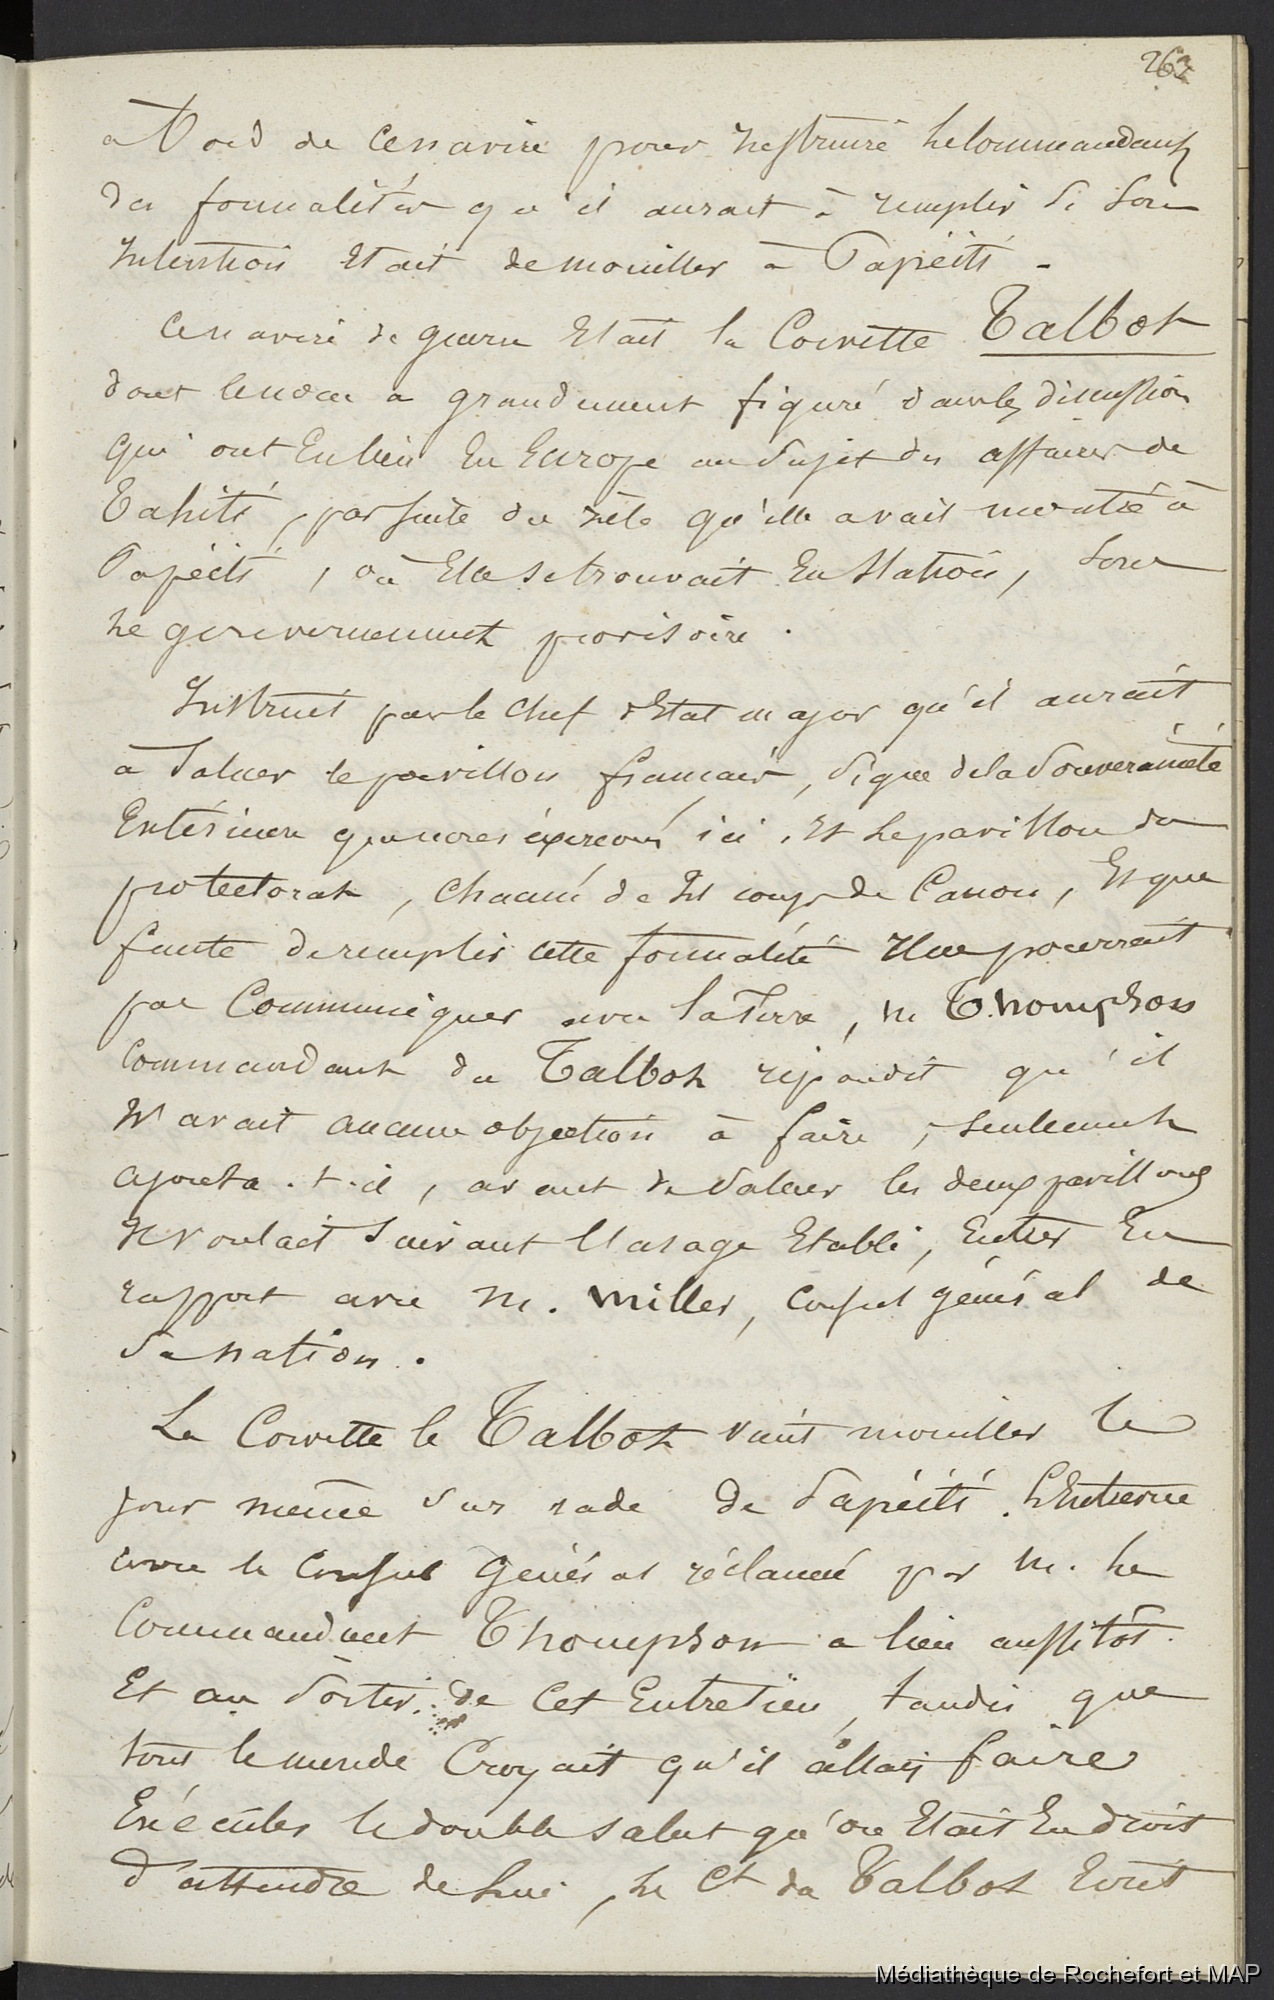 262
à bord de ce navire pour instruire le Commandant
des formalités qu'il aurait à remplir si son
intention était de mouiller à Papéiti.
Ce navire de guerre était la Corvette Talbot
dont le nom a grandement figuré dans les discussions
qui ont eu lieu en Europe au sujet des affaires de
Tahiti, par suite du zèle qu'elle avait montré à
Papéiti, où elle se trouvait en station, sous
le gouvernement provisoire.
Instruit par le chef d'Etat major qu'il aurait
à saluer le pavillon français, signe de la Souveraineté
Extérieure que nous exerçons ici, et le pavillon du
protectorat, chacun de 21 coups de Canon, et que
faute de remplir cette formalité il ne pourrait
pas Communiquer avec la Terre, M. Thompson
Commandant du Talbot répondit qu'il
n'avait aucune objection à faire, seulement
ajouta-t-il, avant de saluer les deux pavillons
il voulait suivant l'usage établi, entrer en
rapport avec M. Miller, Consul général de
sa nation.
La Corvette le Talbot vint mouiller le
jour même sur rade de Papéiti. L'Entrevue
avec le Consul Général réclamée par M. le
Commandant Thompson a lieu aussitôt.
Et au sortir de cet Entretien, tandis que
tout le monde Croyait qu'il allait faire
Exécuter le double salut qu'on était en droit
d'attendre de lui, le Ct du Talbot écrit
Médiathèque de Rochefort et MAP